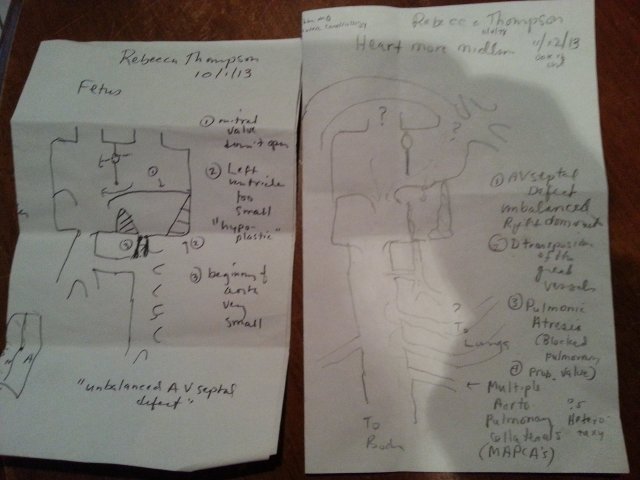 Rebecca Thompson
10/1/13
Fetus
① mitral
valve
doesn't open
② Left
ventricle
too
small
"hypo-
plastic"
③ beginning of
aorta
very
small
①
③
②
"unbalanced AV septal
defect"
A
Rebecca Thompson
Heart more midline
11/12/13
?
?
① AV septal
Defect
unbalanced
Right dominant
② D transposition
of the
great
vessels
③ Pulmonic
Atresia
(Blocked
pulmonary
valve)
④ Prob.
?
To
Lungs
← Multiple
Aorto
Pulmonary
collaterals
(MAPCA's)
?5
Hetero
taxy
To
Body